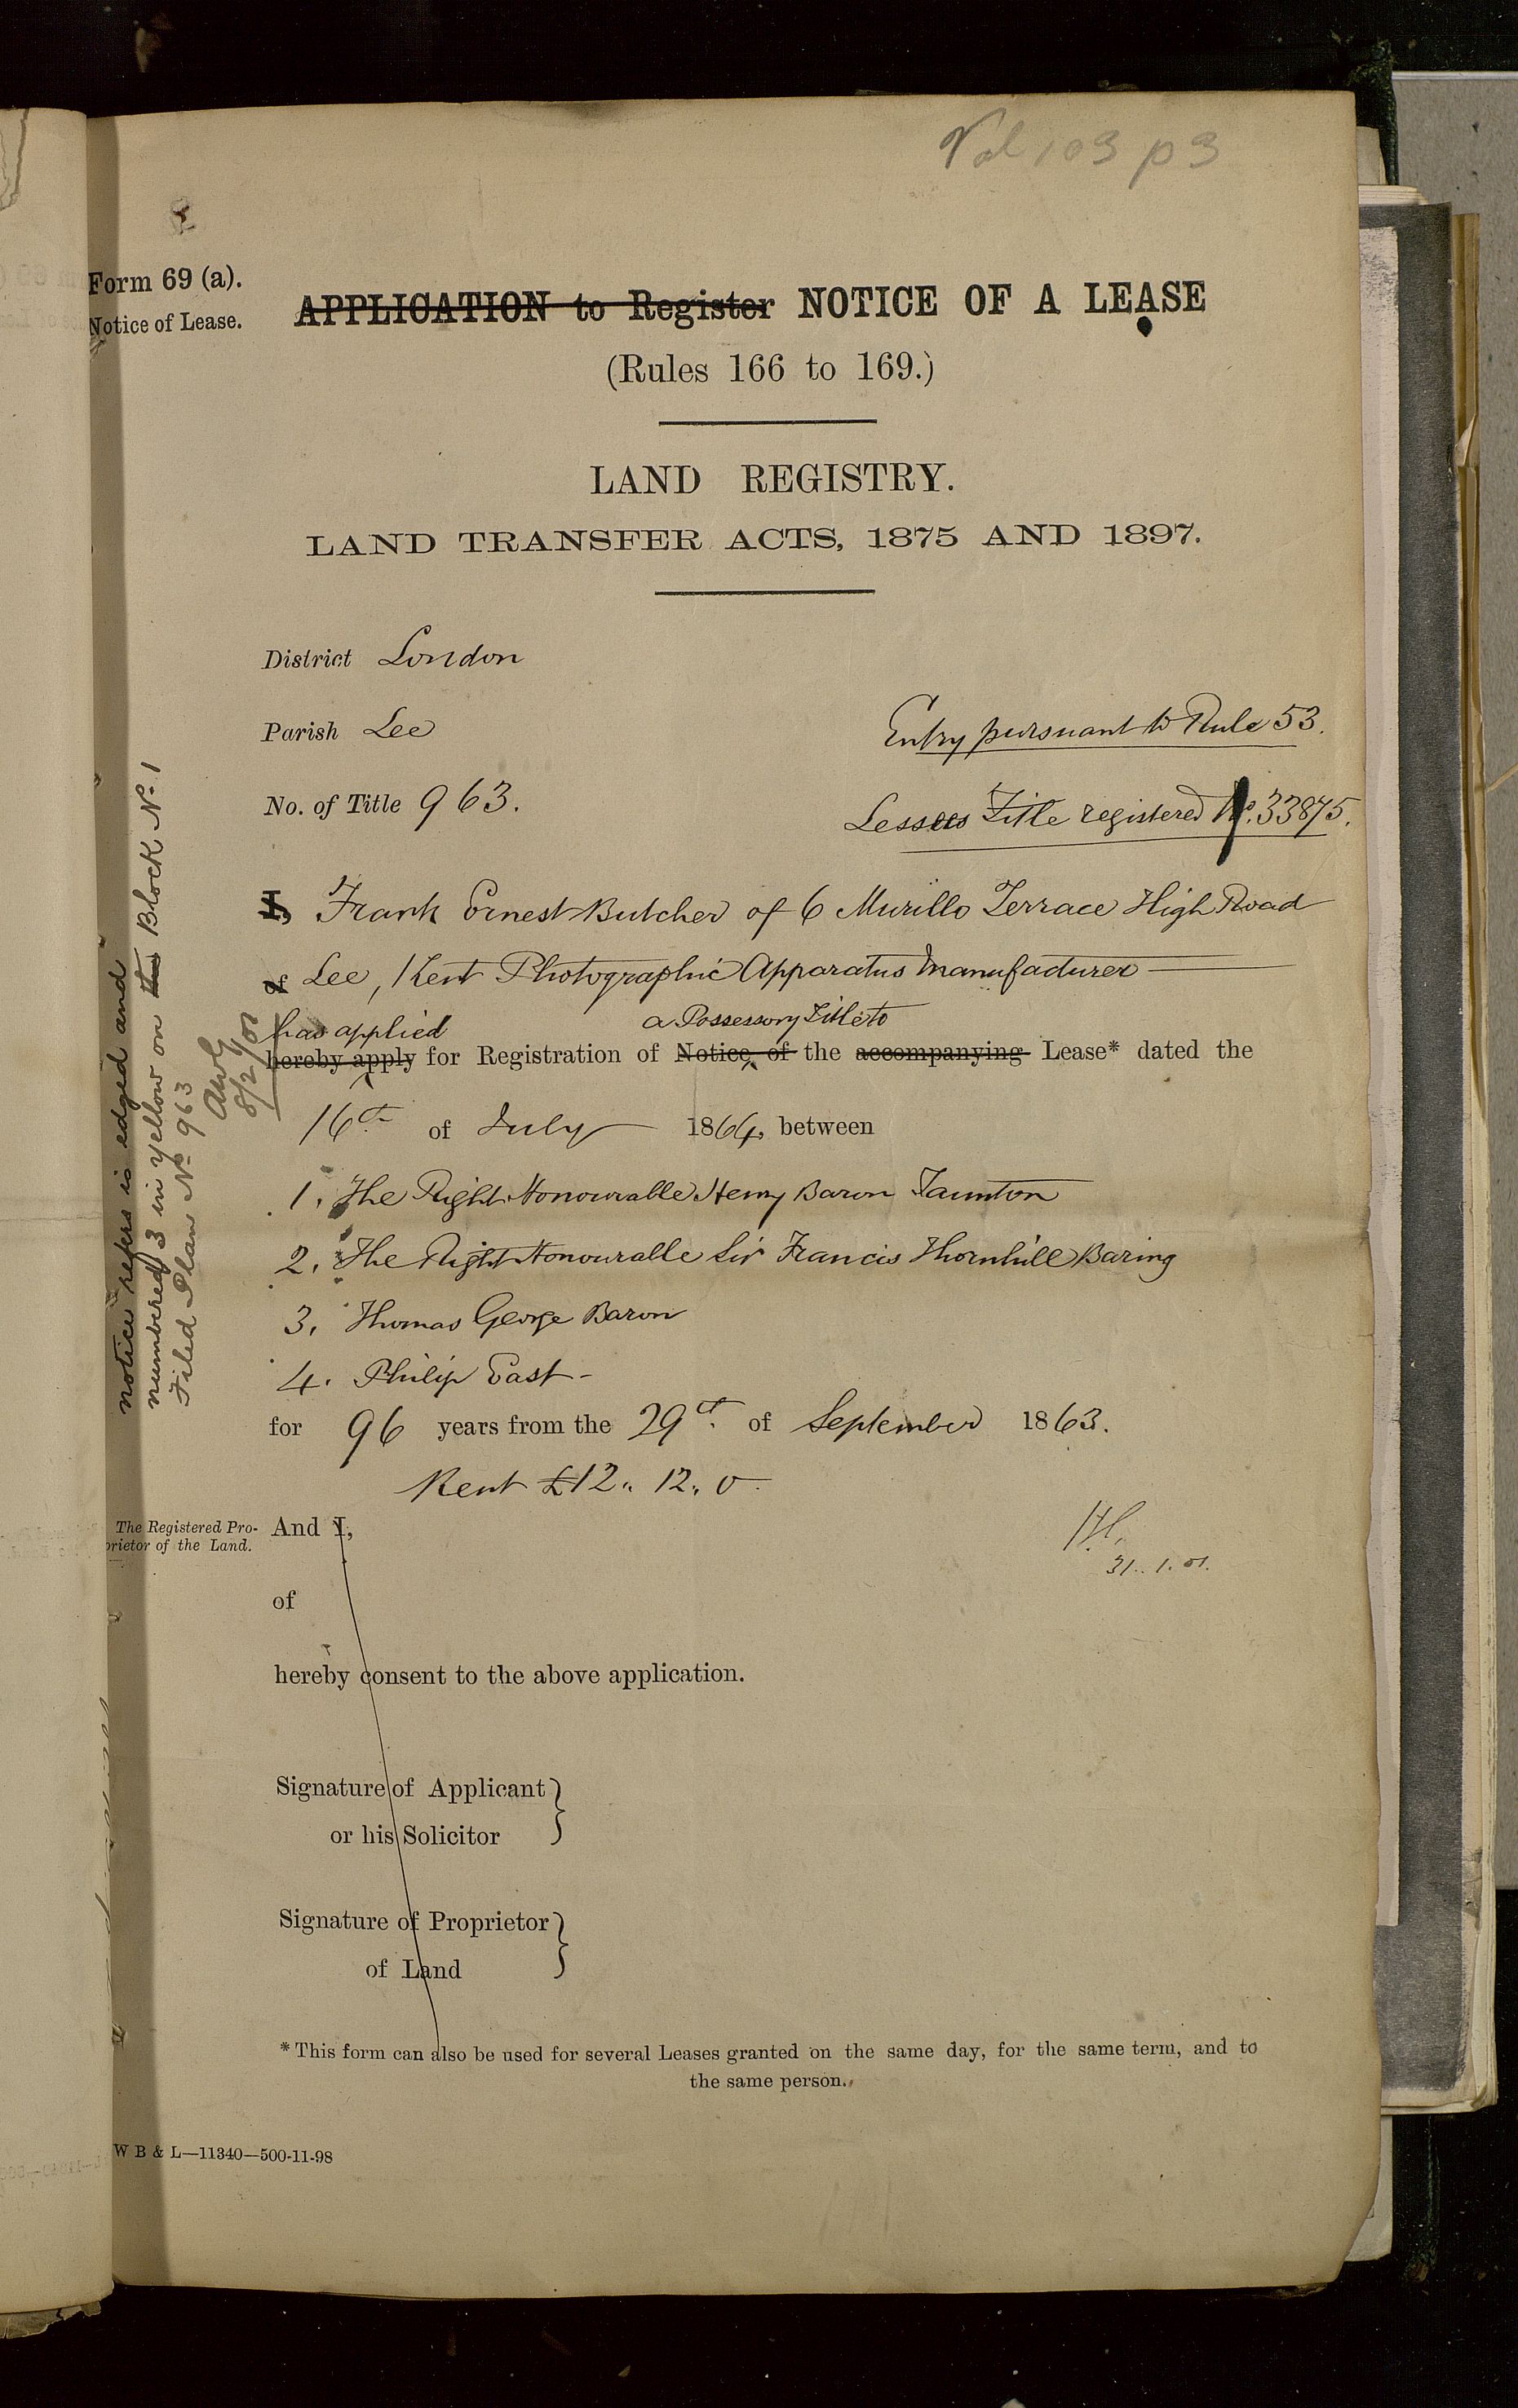 Vol 103 p 3
Form 69 (a).
Notice of Lease.
APPLICATION to Register NOTICE OF A LEASE
(Rules 166 to 169.)
LAND REGISTRY.
LAND TRANSFER ACTS, 1875 AND 1897.
District London
Parish Lee
Entry pursuant to Rule 53.
No. of Title 963.
Lessees Title registered No. 33875.
I, Frank Ernest Butcher of 6 Murillo Terrace High Road
of Lee, Kent Photographic Apparatus Manufacturer
has applied a Possessory Title to
hereby apply for Registration of Notice of the accompanying Lease* dated the
16th of July 1864, between
1. The Right Honourable Henry Baron Taunton
2. The Right Honourable Sir Francis Thornhill Baring
3. Thomas George Baron
4. Philip East -
for 96 years from the 29th of September 1863.
Rent £12 . 12 . 0
The Registered Pro-
prietor of the Land.
And I,
31. 1. 01.
of
hereby consent to the above application.
Signature of Applicant
or his Solicitor
Signature of Proprietor
of Land
* This form can also be used for several Leases granted on the same day, for the same term, and to
the same person.
W B & L—11340—500-11-98
notice refers is edged and
numbered 3 in yellow on the Block No. 1
Filed Plan No 963
8/2/01